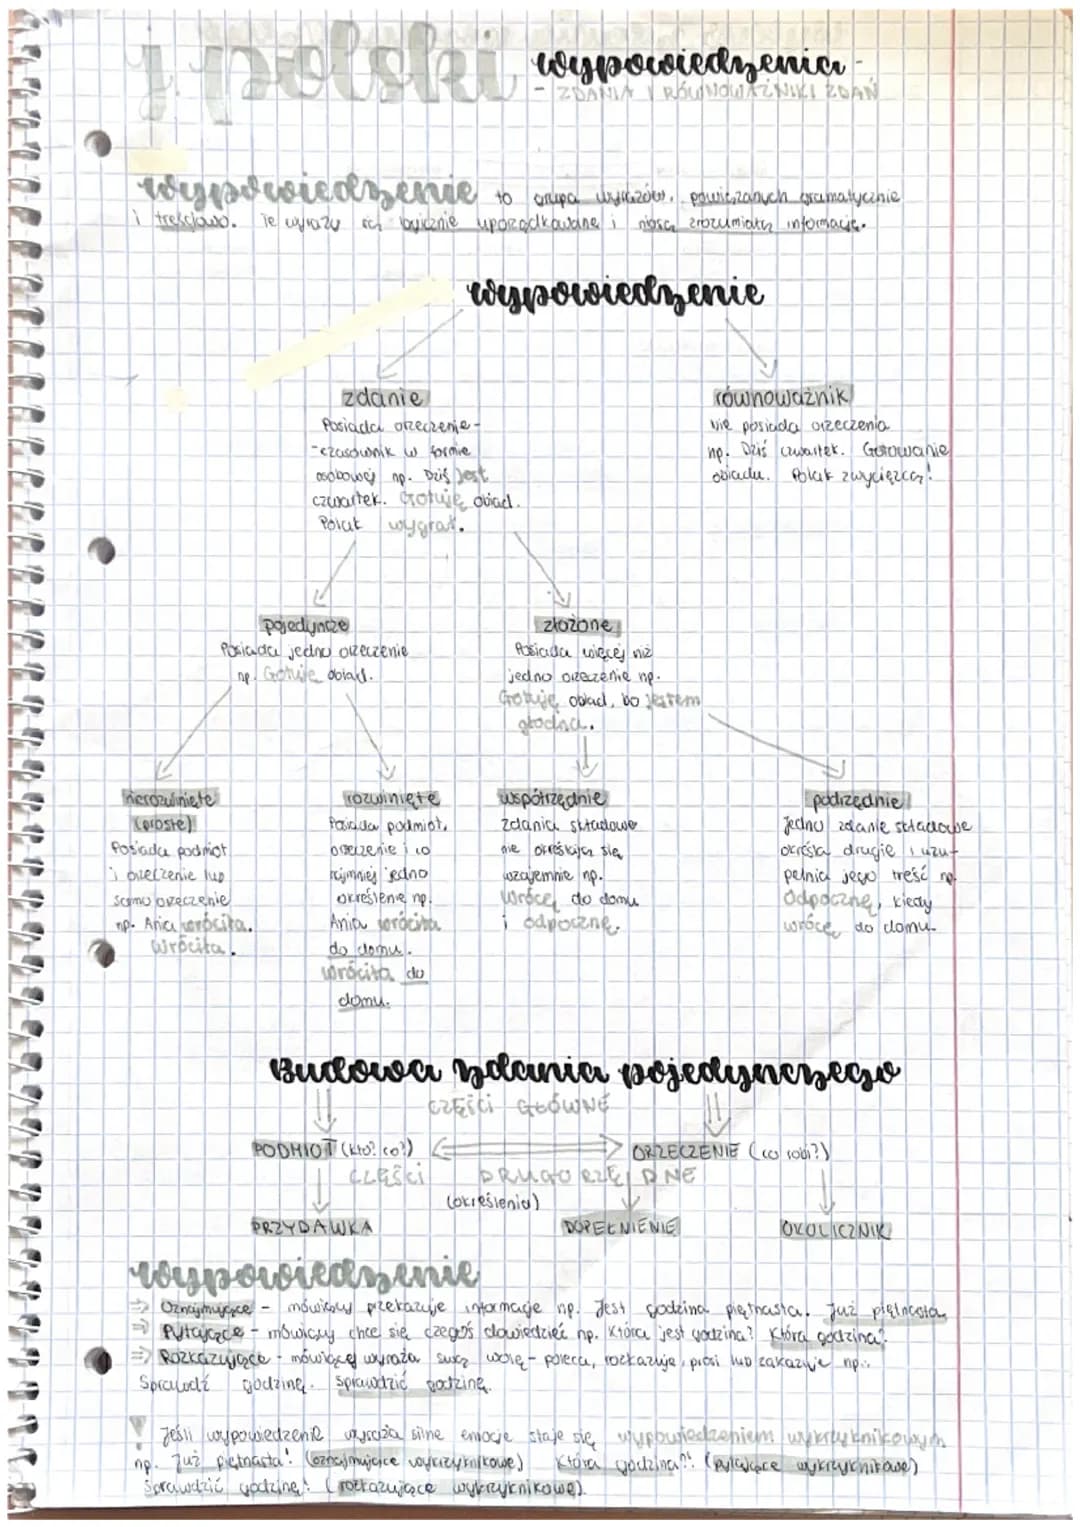 j. polski wypowiedzenia -
- ZDANIA I RÓWNOWAŻNIKI ZDAŃ
wypowiedzenie to grupa wyrazów, powiązanych gramatycznie
i treściowo. Te wyrazy są logicznie uporządkowane i niosą zrozumiałą informację.
wypowiedzenie
zdanie
Posiada orzeczenie -
- czasownik w formie
osobowej np. Dziś jest
czwartek. Gotuję obiad.
Polak wygrał.
równoważnik
Nie posiada orzeczenia
np. Dziś czwartek. Gotowanie
obiadu. Polak zwycięzcą!
pojedyncze
Posiada jedno orzeczenie
np. Gotuję obiad.
złożone
Posiada więcej niż
jedno orzeczenie np.
Gotuję obiad, bo jestem
głodna.
nierozwinięte
(proste)
Posiada podmiot
i orzeczenie lub
samo orzeczenie
np. Ania wróciła.
Wróciła.
rozwinięte
Posiada podmiot,
orzeczenie i co
najmniej jedno
określenie np.
Ania wróciła
do domu.
Wróciła do
domu.
współrzędnie
Zdania składowe
nie określają się
wzajemnie np.
Wrócę do domu
i odpocznę.
podrzędnie
Jedno zdanie składowe
określa drugie i uzu-
pełnia jego treść np.
Odpocznę, kiedy
wrócę do domu.
Budowa zdania pojedynczego
CZĘŚCI GŁÓWNE
PODMIOT (kto? co?) ORZECZENIE (co robi?)
CZĘŚCI DRUGORZĘDNE
(określenia)
PRZYDAWKA DOPEŁNIENIE OKOLICZNIK
wypowiedzenie
⇒ Oznajmujące - mówiący przekazuje informacje np. Jest godzina piętnasta. Już piętnasta.
⇒ Pytające - mówiący chce się czegoś dowiedzieć np. Która jest godzina? Która godzina?
⇒ Rozkazujące - mówiący wyraża swą wolę - poleca, rozkazuje, prosi lub zakazuje np.:
Sprawdź godzinę. Sprawdzić godzinę.
! Jeśli wypowiedzenie wyraża silne emocje staje się wypowiedzeniem wykrzyknikowym
np. Już piętnasta! (oznajmujące wykrzyknikowe) Która godzina?! (pytające wykrzyknikowe)
Sprawdzić godzinę! (rozkazujące wykrzyknikowe).